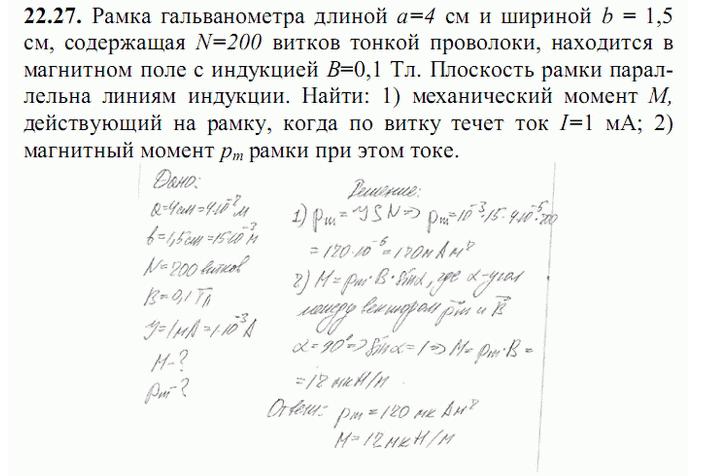 22.27. Рамка гальванометра длиной a=4 см и шириной b = 1,5
см, содержащая N=200 витков тонкой проволоки, находится в
магнитном поле с индукцией B=0,1 Тл. Плоскость рамки парал-
лельна линиям индукции. Найти: 1) механический момент M,
действующий на рамку, когда по витку течет ток I=1 мА; 2)
магнитный момент pm рамки при этом токе.
Дано:
a=4см=4·10⁻²м
b=1,5см=15·10⁻³м
N=200 витков
B=0,1 Тл
I=1мА=1·10⁻³А
M-?
pm-?
Решение:
1) pm=ISN⇒ pm=10⁻³·15·4·10⁻⁵·200
=120·10⁻⁶=120мкАм²
2) M=pm·B·sinα, где α-угол
между вектором pm и B
α=90°⇒sinα=1⇒M=pm·B=
=12мкН/м.
Ответ: pm=120мкАм²
M=12мкН/м